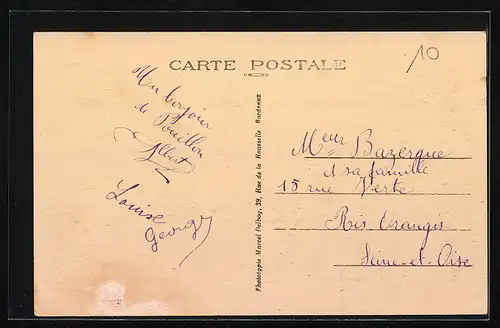 10
CARTE POSTALE
Un bonjour
de Pouillon
Albert
Louise
Georges
Phototypie Marcel Delboy, 39, Rue de la Rousselle Bordeaux
Meur Bazerque
et sa famille
15 rue Verte
Ris Orangis
Seine-et-Oise